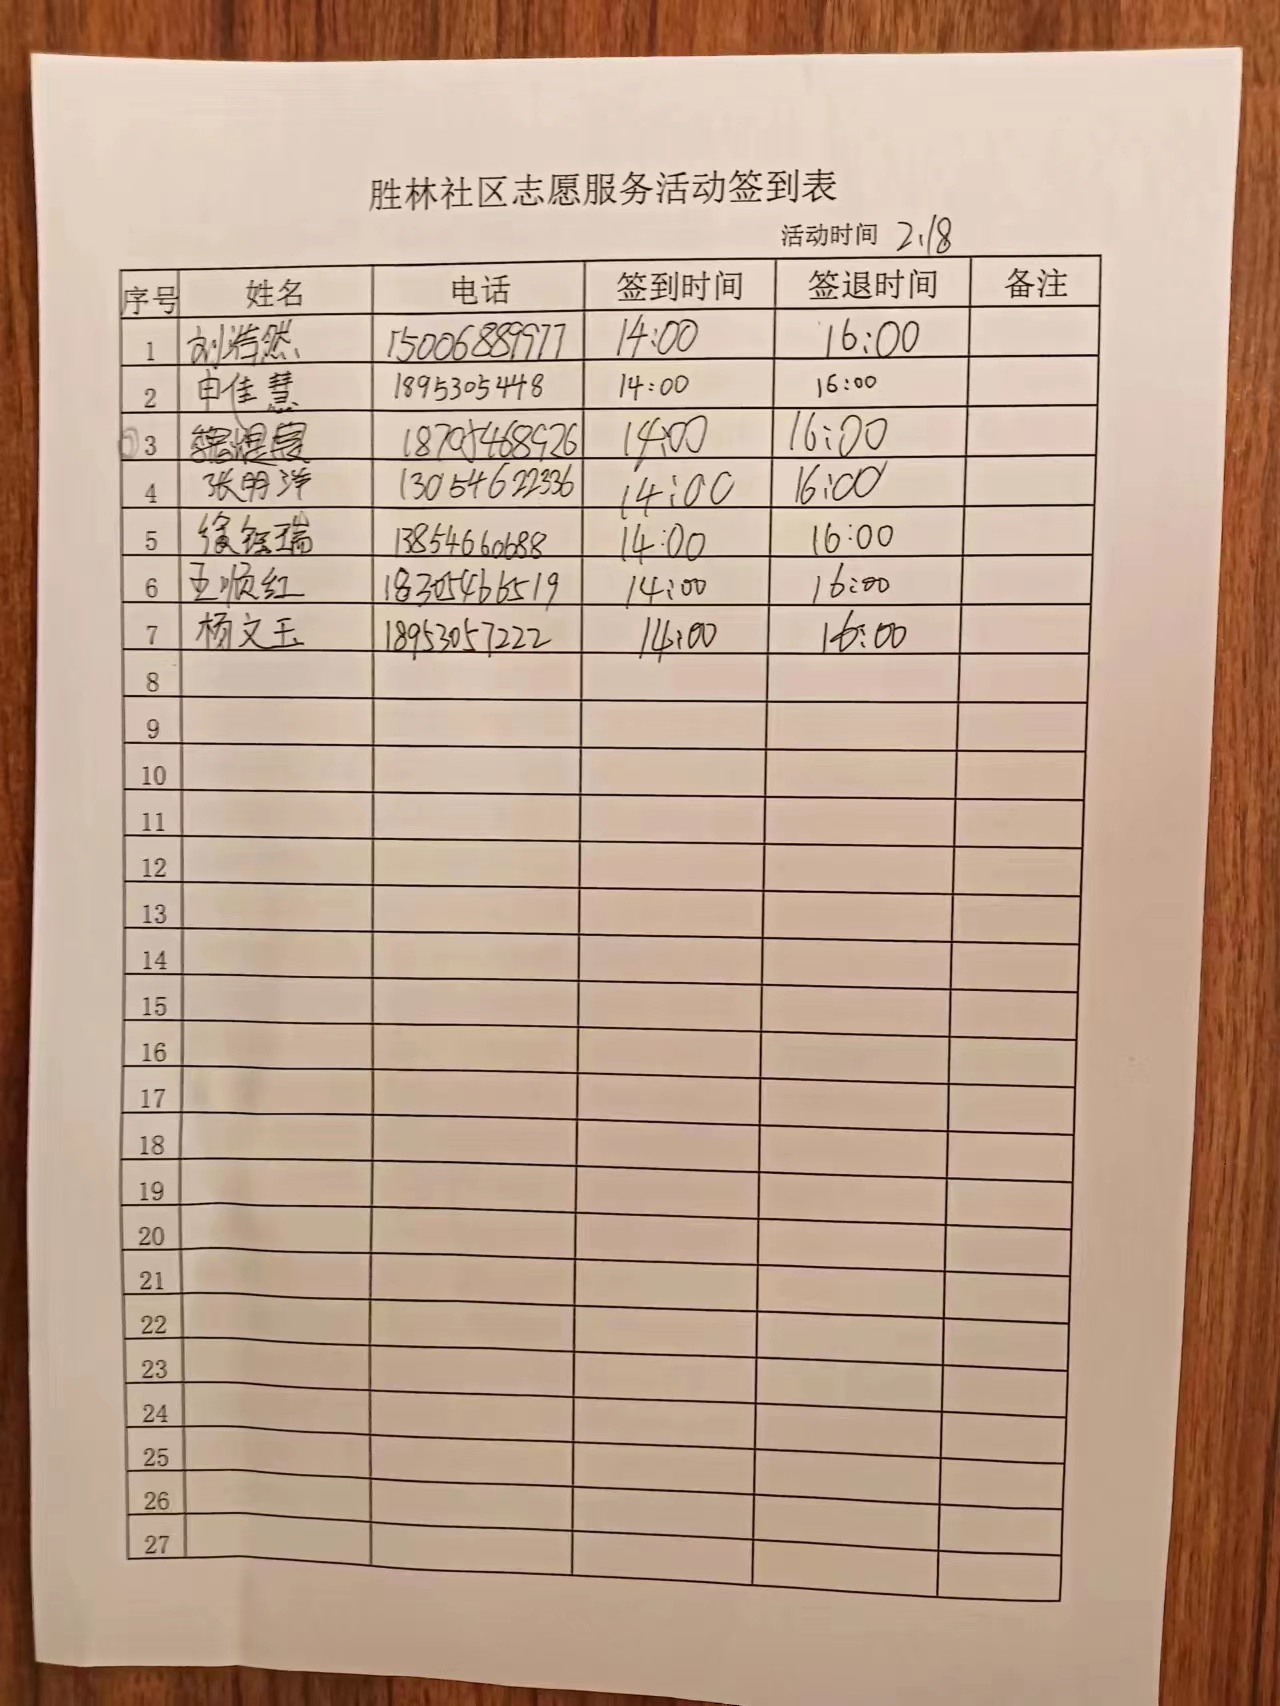 胜林社区志愿服务活动签到表
活动时间 2.18
序号 姓名 电话 签到时间 签退时间 备注
1 刘浩然 15006889977 14:00 16:00
2 申佳慧 1895305448 14:00 16:00
3 18705468926 14:00 16:00
4 张明洋 13054622336 14:00 16:00
5 徐钰瑞 13854660688 14:00 16:00
6 王顺红 18305466519 14:00 16:00
7 杨文玉 18953057222 14:00 16:00
8
9
10
11
12
13
14
15
16
17
18
19
20
21
22
23
24
25
26
27